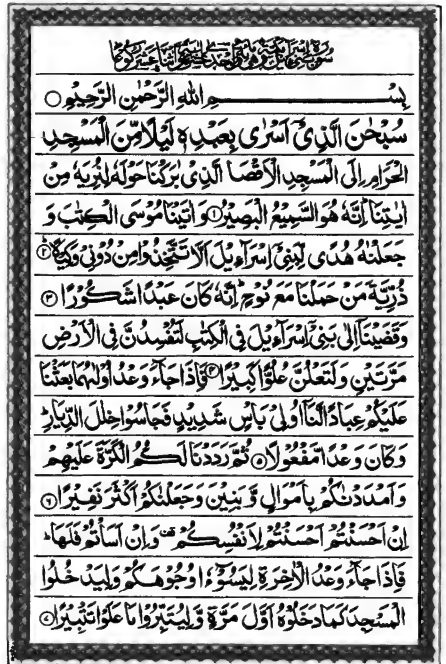 سورة بنی اسرآءیل مکیة
بِسْمِ اللهِ الرَّحْمٰنِ الرَّحِيْمِ
سُبْحٰنَ الَّذِيْٓ اَسْرٰى بِعَبْدِهٖ لَيْلًا مِّنَ الْمَسْجِدِ
الْحَرَامِ اِلَى الْمَسْجِدِ الْاَقْصَا الَّذِيْ بٰرَكْنَا حَوْلَهٗ لِنُرِيَهٗ مِنْ
اٰيٰتِنَا ؕ اِنَّهٗ هُوَ السَّمِيْعُ الْبَصِيْرُ ① وَ اٰتَيْنَا مُوْسَى الْكِتٰبَ وَ
جَعَلْنٰهُ هُدًى لِّبَنِيْٓ اِسْرَآءِيْلَ اَلَّا تَتَّخِذُوْا مِنْ دُوْنِيْ وَكِيْلًا ؕ ②
ذُرِّيَّةَ مَنْ حَمَلْنَا مَعَ نُوْحٍ ؕ اِنَّهٗ كَانَ عَبْدًا شَكُوْرًا ③
وَ قَضَيْنَآ اِلٰى بَنِيْٓ اِسْرَآءِيْلَ فِي الْكِتٰبِ لَتُفْسِدُنَّ فِي الْاَرْضِ
مَرَّتَيْنِ وَ لَتَعْلُنَّ عُلُوًّا كَبِيْرًا ④ فَاِذَا جَآءَ وَعْدُ اُوْلٰىهُمَا بَعَثْنَا
عَلَيْكُمْ عِبَادًا لَّنَآ اُولِيْ بَاْسٍ شَدِيْدٍ فَجَاسُوْا خِلٰلَ الدِّيَارِ ؕ
وَ كَانَ وَعْدًا مَّفْعُوْلًا ⑤ ثُمَّ رَدَدْنَا لَكُمُ الْكَرَّةَ عَلَيْهِمْ
وَ اَمْدَدْنٰكُمْ بِاَمْوَالٍ وَّ بَنِيْنَ وَ جَعَلْنٰكُمْ اَكْثَرَ نَفِيْرًا ⑥
اِنْ اَحْسَنْتُمْ اَحْسَنْتُمْ لِاَنْفُسِكُمْ ۫ وَ اِنْ اَسَاْتُمْ فَلَهَا ؕ
فَاِذَا جَآءَ وَعْدُ الْاٰخِرَةِ لِيَسُوْٓءٗا وُجُوْهَكُمْ وَ لِيَدْخُلُوا
الْمَسْجِدَ كَمَا دَخَلُوْهُ اَوَّلَ مَرَّةٍ وَّ لِيُتَبِّرُوْا مَا عَلَوْا تَتْبِيْرًا ⑦